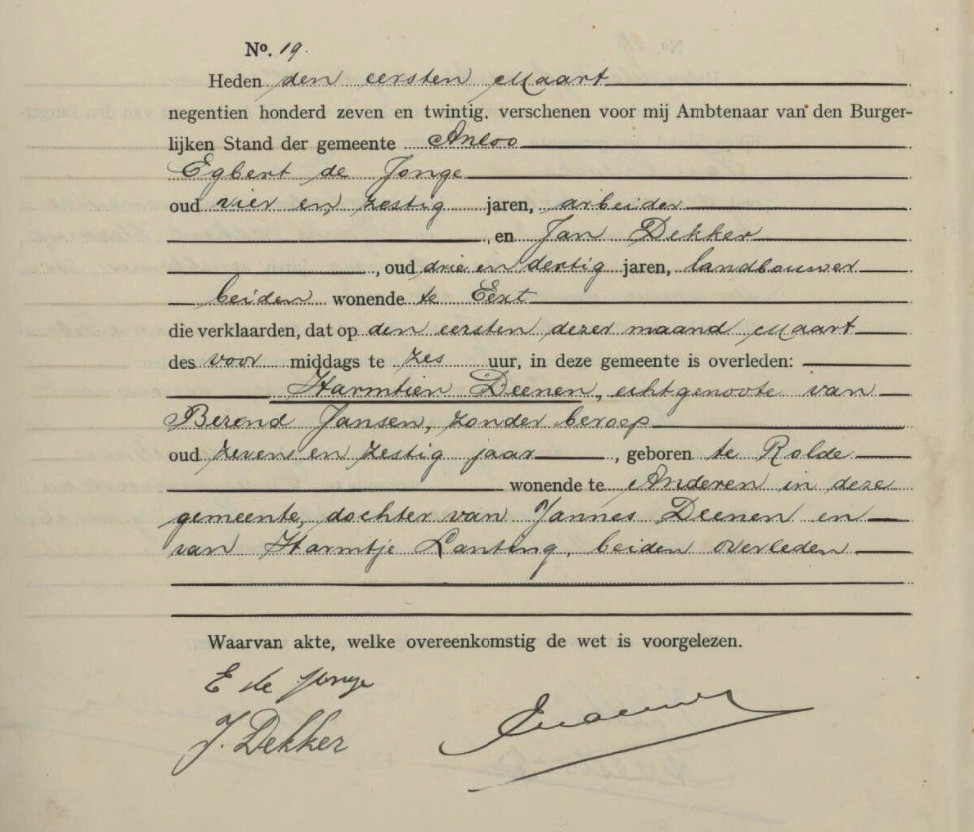 No. 19.
Heden den eersten Maart
negentien honderd zeven en twintig, verschenen voor mij Ambtenaar van den Burger-
lijken Stand der gemeente Anloo
Egbert de Jonge
oud vier en zestig jaren, arbeider
, en Jan Dekker
, oud drie en dertig jaren, landbouwer
beiden wonende te Eext
die verklaarden, dat op den eersten dezer maand Maart
des voor middags te zes uur, in deze gemeente is overleden:
Harmtien Deenen, echtgenoote van
Berend Jansen, zonder beroep
oud zeven en zestig jaar, geboren te Rolde
wonende te Anderen in deze
gemeente, dochter van Jannes Deenen en
van Harmtje Lanting, beiden overleden
Waarvan akte, welke overeenkomstig de wet is voorgelezen.
E de Jonge
J. Dekker